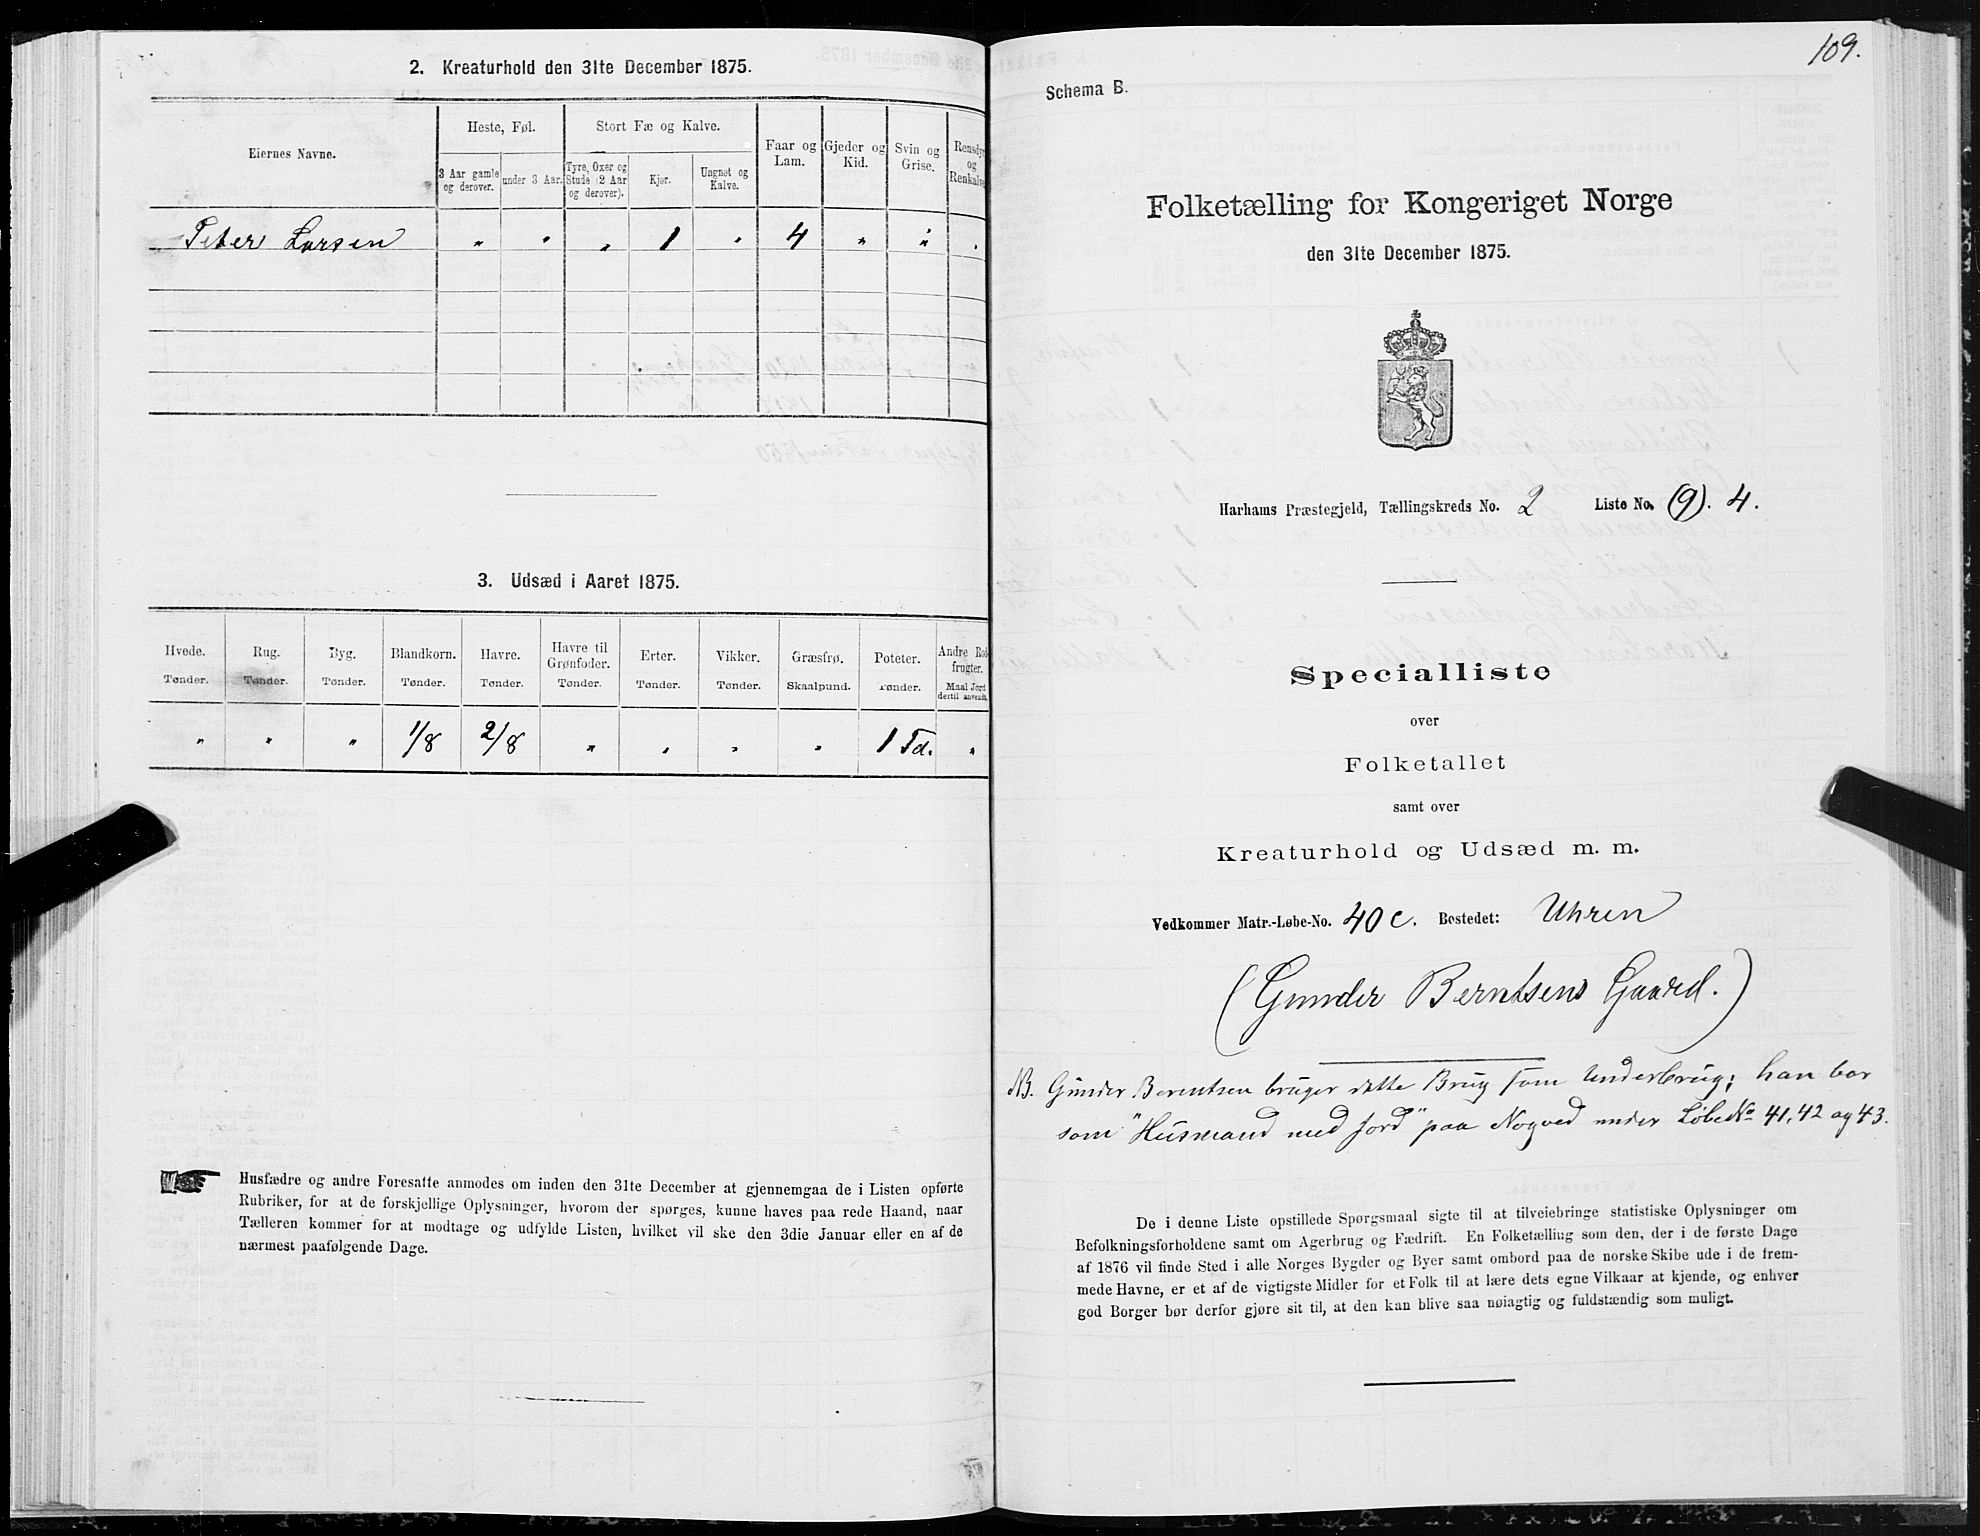 2. Kreaturhold den 31te December 1875.
Eiernes Navne.
Heste, Føl.
Stort Fæ og Kalve.
Faar og Lam.
Gjeder og Kid.
Svin og Grise.
Rensdyr og Renkalve
3 Aar gamle og derover.
under 3 Aar.
Tyre, Oxer og Stude (2 Aar og derover).
Kjør.
Ungnøt og Kalve.
Peter Larsen " " " 1 " 4 " " "
3. Udsæd i Aaret 1875.
Hvede. Rug. Byg. Blandkorn. Havre. Havre til Grønfoder. Erter. Vikker. Græsfrø. Poteter. Andre Rodfrugter.
Tønder. Tønder. Tønder. Tønder. Tønder. Tønder. Tønder. Tønder. Skaalpund. Tønder. Maal Jord dertil anvendt.
" " " 1/8 2/8 " " " " 1 Td. "
Husfædre og andre Foresatte anmodes om inden den 31te December at gjennemgaa de i Listen opførte
Rubriker, for at de forskjellige Oplysninger, hvorom der spørges, kunne haves paa rede Haand, naar
Tælleren kommer for at modtage og udfylde Listen, hvilket vil ske den 3die Januar eller en af de
nærmest paafølgende Dage.
109.
Schema B.
Folketælling for Kongeriget Norge
den 31te December 1875.
Harhams Præstegjeld, Tællingskreds No. 2 Liste No. (9). 4.
Specialliste
over
Folketallet
samt over
Kreaturhold og Udsæd m. m.
Vedkommer Matr.-Løbe-No. 40 c. Bostedet: Uhren
(Gunder Berntsens Gaard.)
NB. Gunder Berentsen bruger dette Brug som Underbrug; han bor
som "Husmand med Jord" paa Nogved under Løbe No 41, 42 og 43.
De i denne Liste opstillede Spørgsmaal sigte til at tilveiebringe statistiske Oplysninger om
Befolkningsforholdene samt om Agerbrug og Fædrift. En Folketælling som den, der i de første Dage
af 1876 vil finde Sted i alle Norges Bygder og Byer samt ombord paa de norske Skibe ude i de frem-
mede Havne, er et af de vigtigste Midler for et Folk til at lære dets egne Vilkaar at kjende, og enhver
god Borger bør derfor gjøre sit til, at den kan blive saa nøiagtig og fuldstændig som muligt.